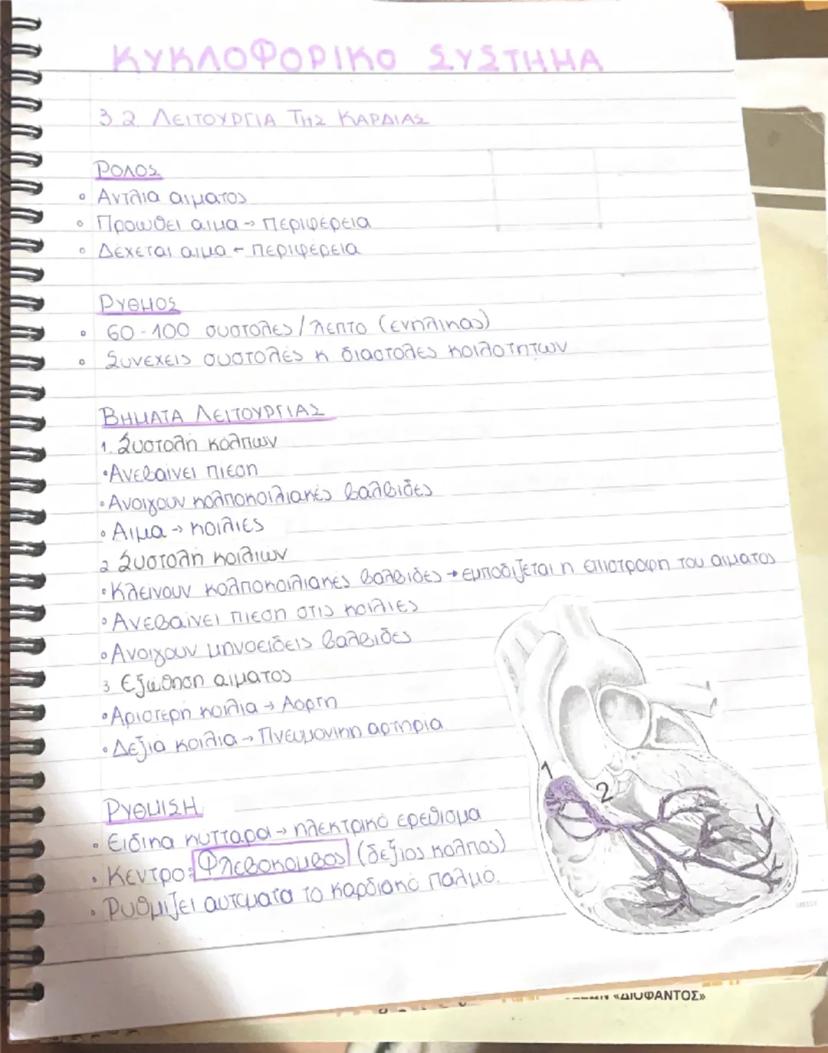 ΚΥΚΛΟΦΟΡΙΚΟ ΣΥΣΤΗΜΑ
3.2 ΛΕΙΤΟΥΡΓΙΑ ΤΗΣ ΚΑΡΔΙΑΣ
ΡΟΛΟΣ
• Αντλια αιματος
• Προωθει αιμα → περιφερεια
• Δεχεται αιμα ← περιφερεια
ΡΥΘΜΟΣ
• 60-100 συστολες/λεπτο (ενηλικας)
• Συνεχεις συστολές κ διαστολες κοιλοτητων
ΒΗΜΑΤΑ ΛΕΙΤΟΥΡΓΙΑΣ
1. Συστολη κολπων
• Ανεβαινει πιεση
• Ανοιγουν κολποκοιλιακές βαλβιδες
• Αιμα → κοιλιες
2. Συστολή κοιλιων
• Κλεινουν κολποκοιλιακες βαλβιδες → εμποδιζεται η επιστροφη του αιματος
• Ανεβαινει πιεση στις κοιλιες
• Ανοιγουν μηνοειδεις βαλβιδες
3 Εξωθηση αιματος
• Αριστερη κοιλια → Αορτη
• Δεξιά κοιλια → Πνευμονικη αρτηρια
ΡΥΘΜΙΣΗ
• Ειδικα κυτταρα → ηλεκτρικό ερεθισμα
• Κεντρο: Φλεβοκομβος (δεξιος κολπος)
• Ρυθμιζει αυτοματα το καρδιακό παλμό.
1
2
«ΔΙΟΦΑΝΤΟΣ»